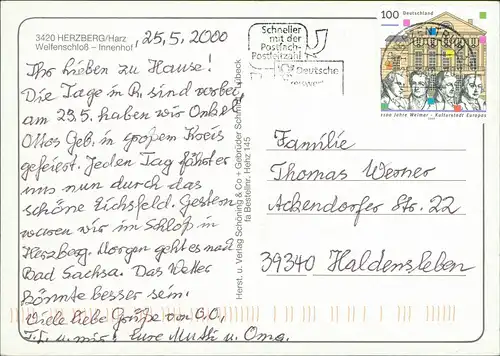 3420 HERZBERG/Harz
Welfenschloß – Innenhof
25.5.2000
Ihr lieben zu Hause!
Die Tage in R. sind vorbei,
am 23.5. haben wir Onkel
Ottos Geb. in großem Kreis
gefeiert. Jeden Tag fährt er
uns nun durch das
schöne Eichsfeld. Gestern
waren wir im Schloß in
Herzberg. Morgen geht es nach
Bad Sachsa. Das Wetter
könnte besser sein.
Viele liebe Grüße von O.O.,
u. mir, Eure Mutti u. Oma.
Herst. u. Verlag Schöning & Co + Gebrüder Schmidt, Lübeck
Bestellnr. Hehz 145
Schneller
mit der
Postfach-
Postleitzahl
Deutsche
100 Deutschland
1100 Jahre Weimar - Kulturstadt Europas
Familie
Thomas Werner
Ackendorfer Str. 22
39340 Haldensleben